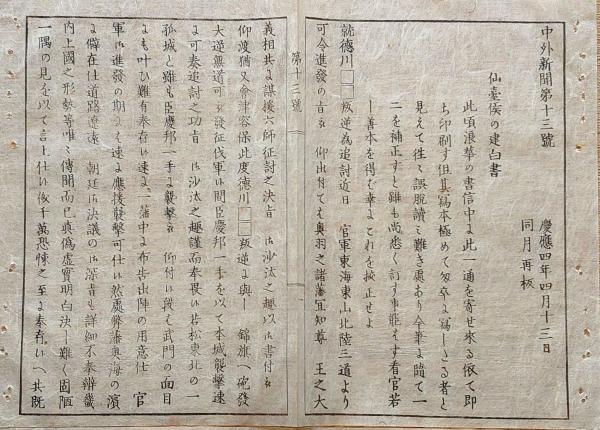 中外新聞第十三號
慶應四年四月十三日
同月再板
仙臺侯の建白書
此頃浪華の書信中よ此一通を寄せ來る依て即
ち印刷す但其寫本極めて匆卒よ寫しさる者と
見えて往々誤脱讀え難き處あり今筆よ隨て一
二を補正すと雖も尚悉く訂す事能はす看官若
し善本を得む幸よこれを挨正せよ
就德川□□叛逆為追討近日 官軍東海東山北陸三道より
可令進發の旨 仰出付ても奥羽之諸藩宜知尊 王之大
第十三號
義相共よ謀援六師征討之決旨 沙汰之趣以 書付
仰渡猶又會津容保此度德川□□叛逆よ與し 錦旗へ砲發
大逆無道可 發征伐軍 間臣慶邦一手を以て本城襲擊速
よ可奏追討之功旨 沙汰之趣謹而奉畏 若松東北の一
孤城と雖も臣慶邦一手よ襲擊 仰付 段も武門の面目
よも叶ひ難有奉存 速よ一藩中よ布告出陣の用意仕 官
軍 進發の期よも速よ應援襲擊可仕 然處弊藩奥海の濱
よ僻在仕道路遼遠 朝廷 決議の 深旨も詳細不奉辯畿
内上國之形勢等唯々傳聞而已真偽虛實明白決し難く固陋
一隅の見を以て言上仕 儀千萬恐悚之至よ奉存 へ共既